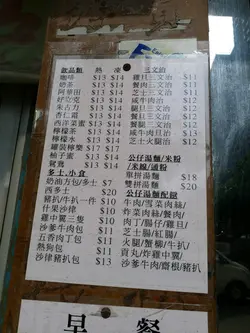 飲品類 熱 凍
咖啡 $13 $14
奶茶 $13 $14
阿華田 $13 $14
好立克 $13 $14
朱古力 $13 $14
杏仁霜 $13 $14
西洋菜蜜 $13 $14
檸檬茶 $13 $14
檸檬水 $13 $14
罐裝檸樂 $17
柚子蜜 $13 $14
鴛鴦 $13 $14
多士,小食
奶油方包/多士 $7
西多士 $20
豬扒/牛扒一件 $10
什果沙律 $10
雞中翼三隻 $10
沙爹牛肉包 $10
五香肉丁包 $10
熱狗包 $11
沙律豬扒包 $13
三文治
雞旦三文治 $11
餐肉三文治 $11
芝士三文治 $11
咸牛肉治 $11
腿旦三文治 $12
餐旦三文治 $12
芝旦三文治 $12
咸牛肉旦治 $12
芝士火腿治 $12
公仔湯麵/米粉
/米線/通粉
單拼湯麵 $18
雙拼湯麵 $20
公仔湯麵配餸
牛肉/雪菜肉絲/
炸菜肉絲/餐肉/
肉丁/腸仔/雞旦/
芝士腸/紅腸/
火腿/蟹柳/牛扒/
貢丸/炸雞中翼/
沙爹牛肉/齋根/豬扒
早餐